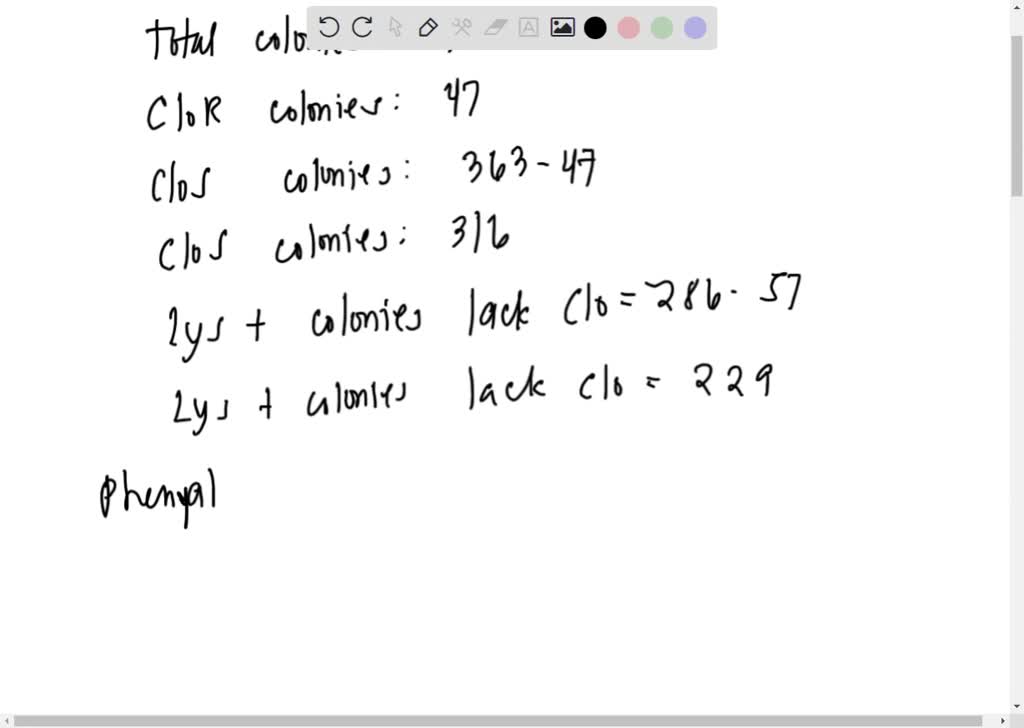 Total
CloR colonies: 47
CloS colonies: 363 - 47
CloS colonies: 316
lys + colonies lack Clo = 286 - 57
Lys + colonies lack clo = 229
Phenyal